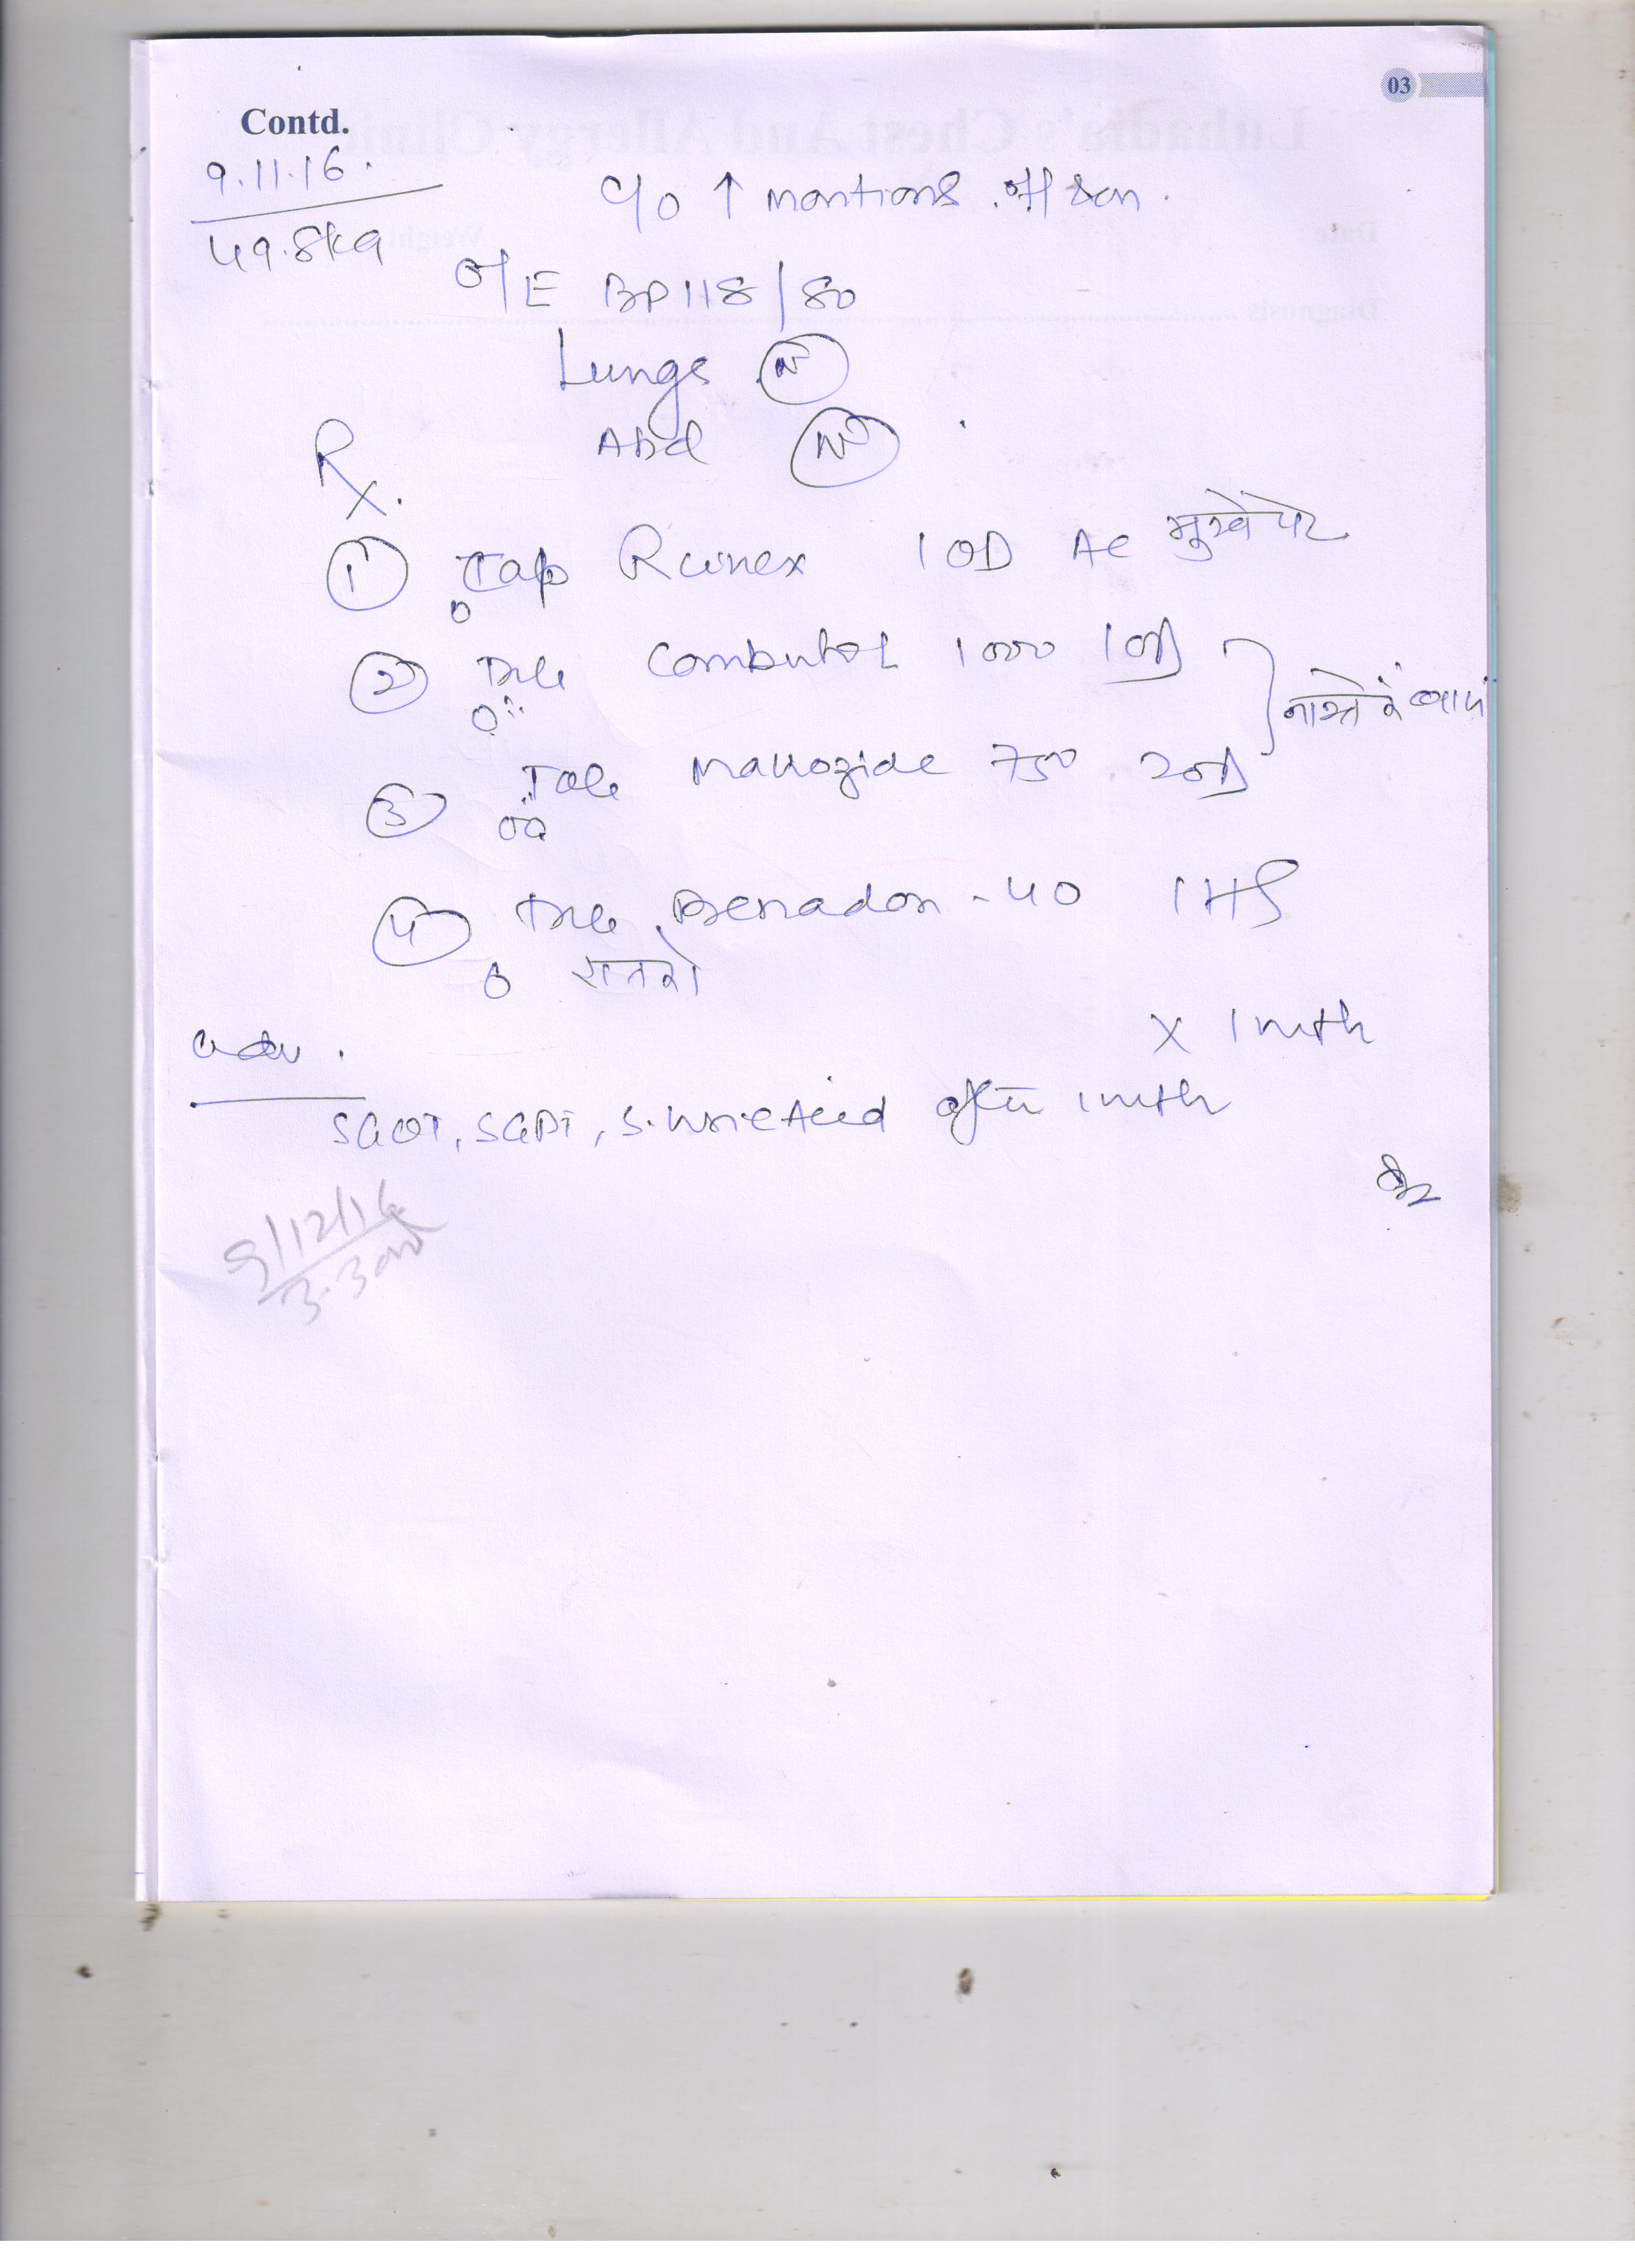 03
Contd.
9.11.16.
49.8kg
c/o ↑ motions off & on.
O/E BP 118/80
Lungs N
Abd N
Rx.
1 Cap Rcinex 1 OD AC भूखे पेट
2 Tab Combutol 1000 1 OD
नाश्ते के बाद
3 Tab Makozide 750 2 OD
4 Tab Benadon - 40 1 HS
रात को
x 1 mth
adv.
SGOT, SGPT, S. Uric Acid after 1 mth
9/12/16
3.30